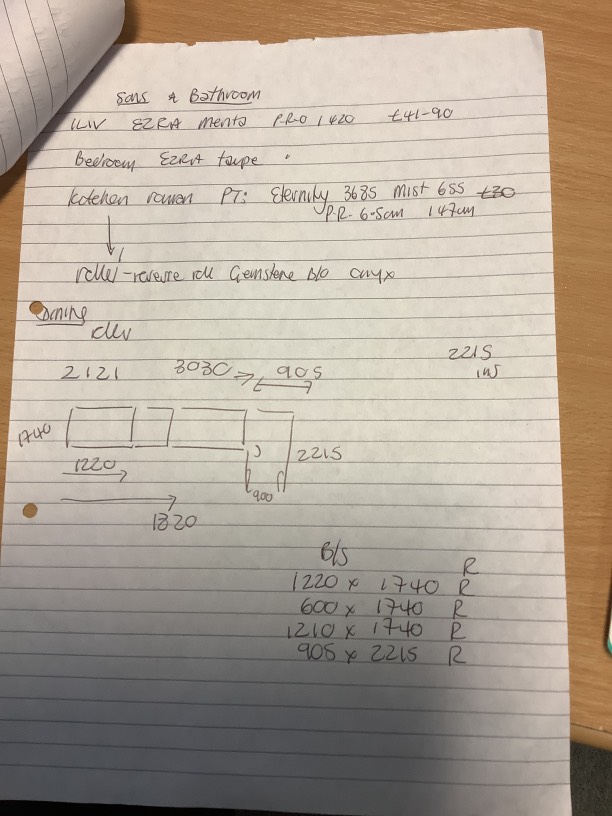 Sons & Bathroom
ILIV EZRA Mento P.RO 1420 £41-90
Bedroom EZRA taupe
Kotchen rowen PT: Eternity 3685 Mist 685 £30
P.R. 6.5cm 147cm
roller-reverse roll Gemstone B/O onyx
2121 3030 905 2215
ins
1740
1220 2215
900
1820
B/S
R
1220 x 1740 R
600 x 1740 R
1210 x 1740 R
905 x 2215 R